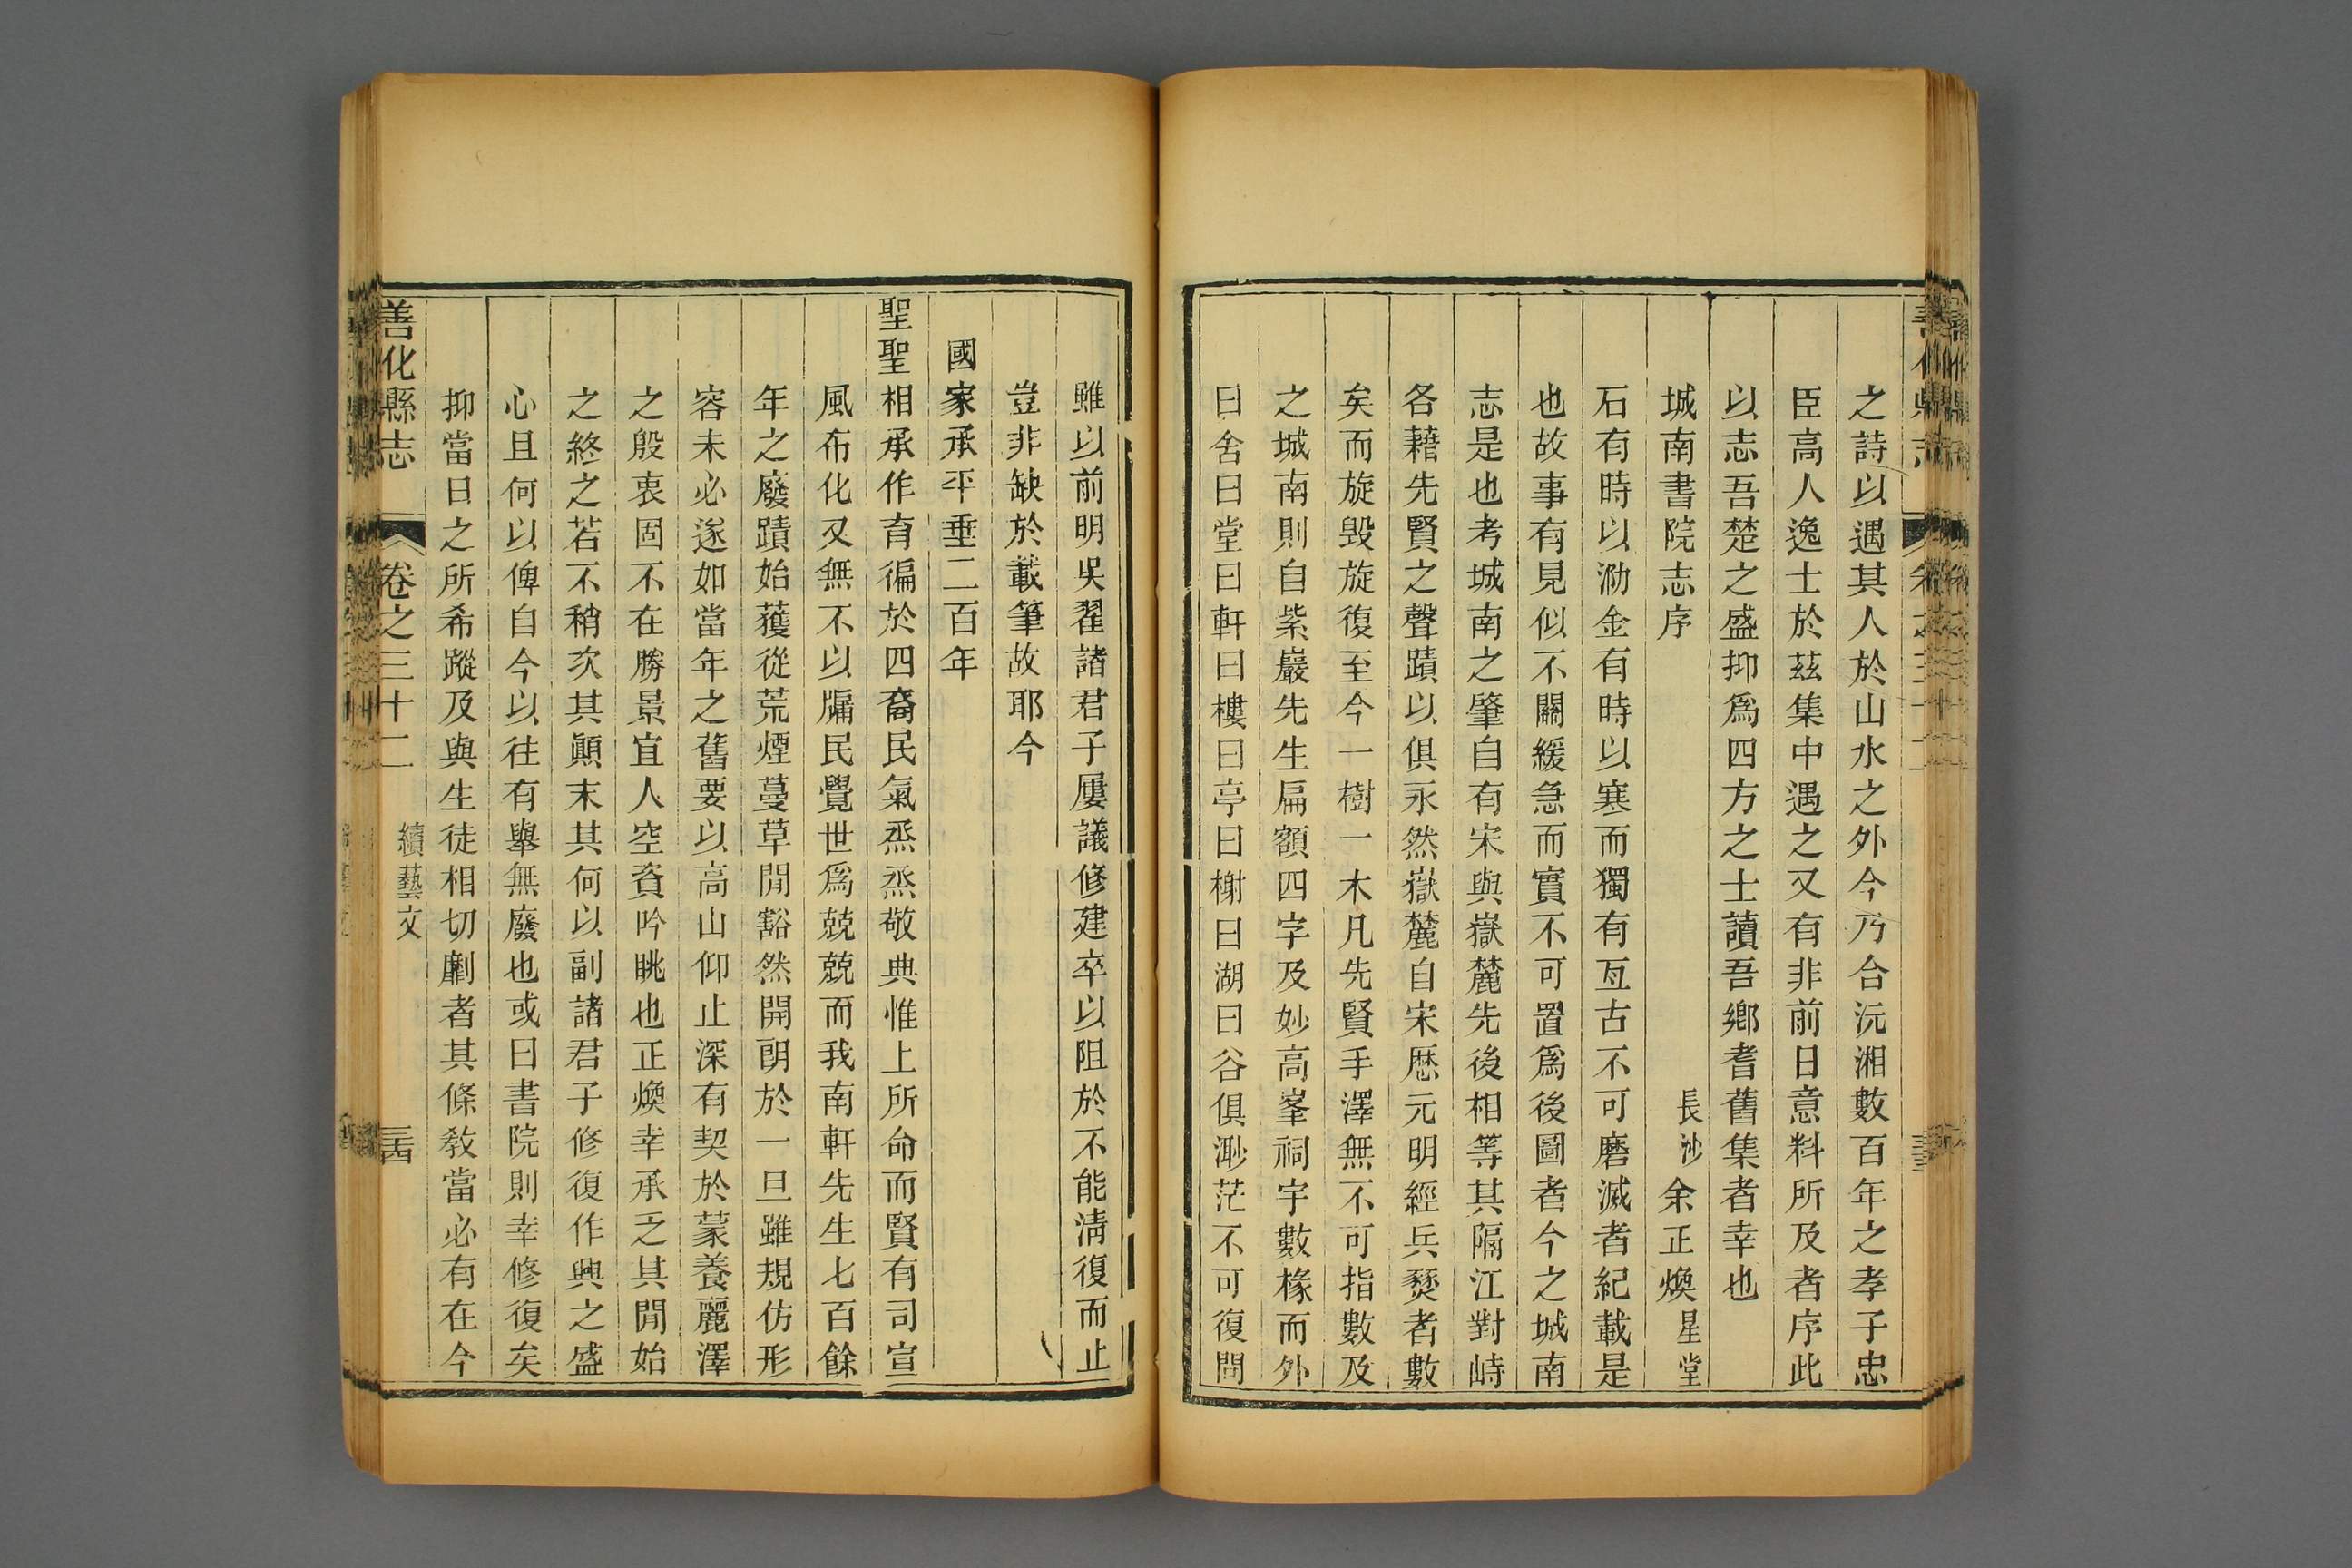 之詩以遇其人於山水之外今乃合沅湘數百年之孝子忠
臣高人逸士於茲集中遇之又有非前日意料所及者序此
以志吾楚之盛抑爲四方之士讀吾鄉耆舊集者幸也
城南書院志序 長沙余正煥星堂
石有時以泐金有時以寒而獨有亙古不可磨滅者紀載是
也故事有見似不關緩急而實不可置爲後圖者今之城南
志是也考城南之肇自有宋與嶽麓先後相等其隔江對峙
各藉先賢之聲蹟以俱永然嶽麓自宋歷元明經兵燹者數
矣而旋毀旋復至今一樹一木凡先賢手澤無不可指數及
之城南則自紫巖先生扁額四字及妙高峯祠宇數椽而外
曰舍曰堂曰軒曰樓曰亭曰榭曰湖曰谷俱渺茫不可復問
雖以前明吳翟諸君子屢議修建卒以阻於不能淸復而止
豈非缺於載筆故耶今
國家承平垂二百年
聖聖相承作育徧於四裔民氣烝烝敬典惟上所命而賢有司宣
風布化又無不以牖民覺世爲兢兢而我南軒先生七百餘
年之廢蹟始獲從荒煙蔓草閒豁然開朗於一旦雖規仿形
容未必遂如當年之舊要以高山仰止深有契於蒙養麗澤
之殷衷固不在勝景宜人空資吟眺也正煥幸承乏其閒始
之終之若不稍次其顚末其何以副諸君子修復作興之盛
心且何以俾自今以往有舉無廢也或曰書院則幸修復矣
抑當日之所希蹤及與生徒相切劘者其條敎當必有在今
善化縣志 卷之三十二 續藝文 三十四